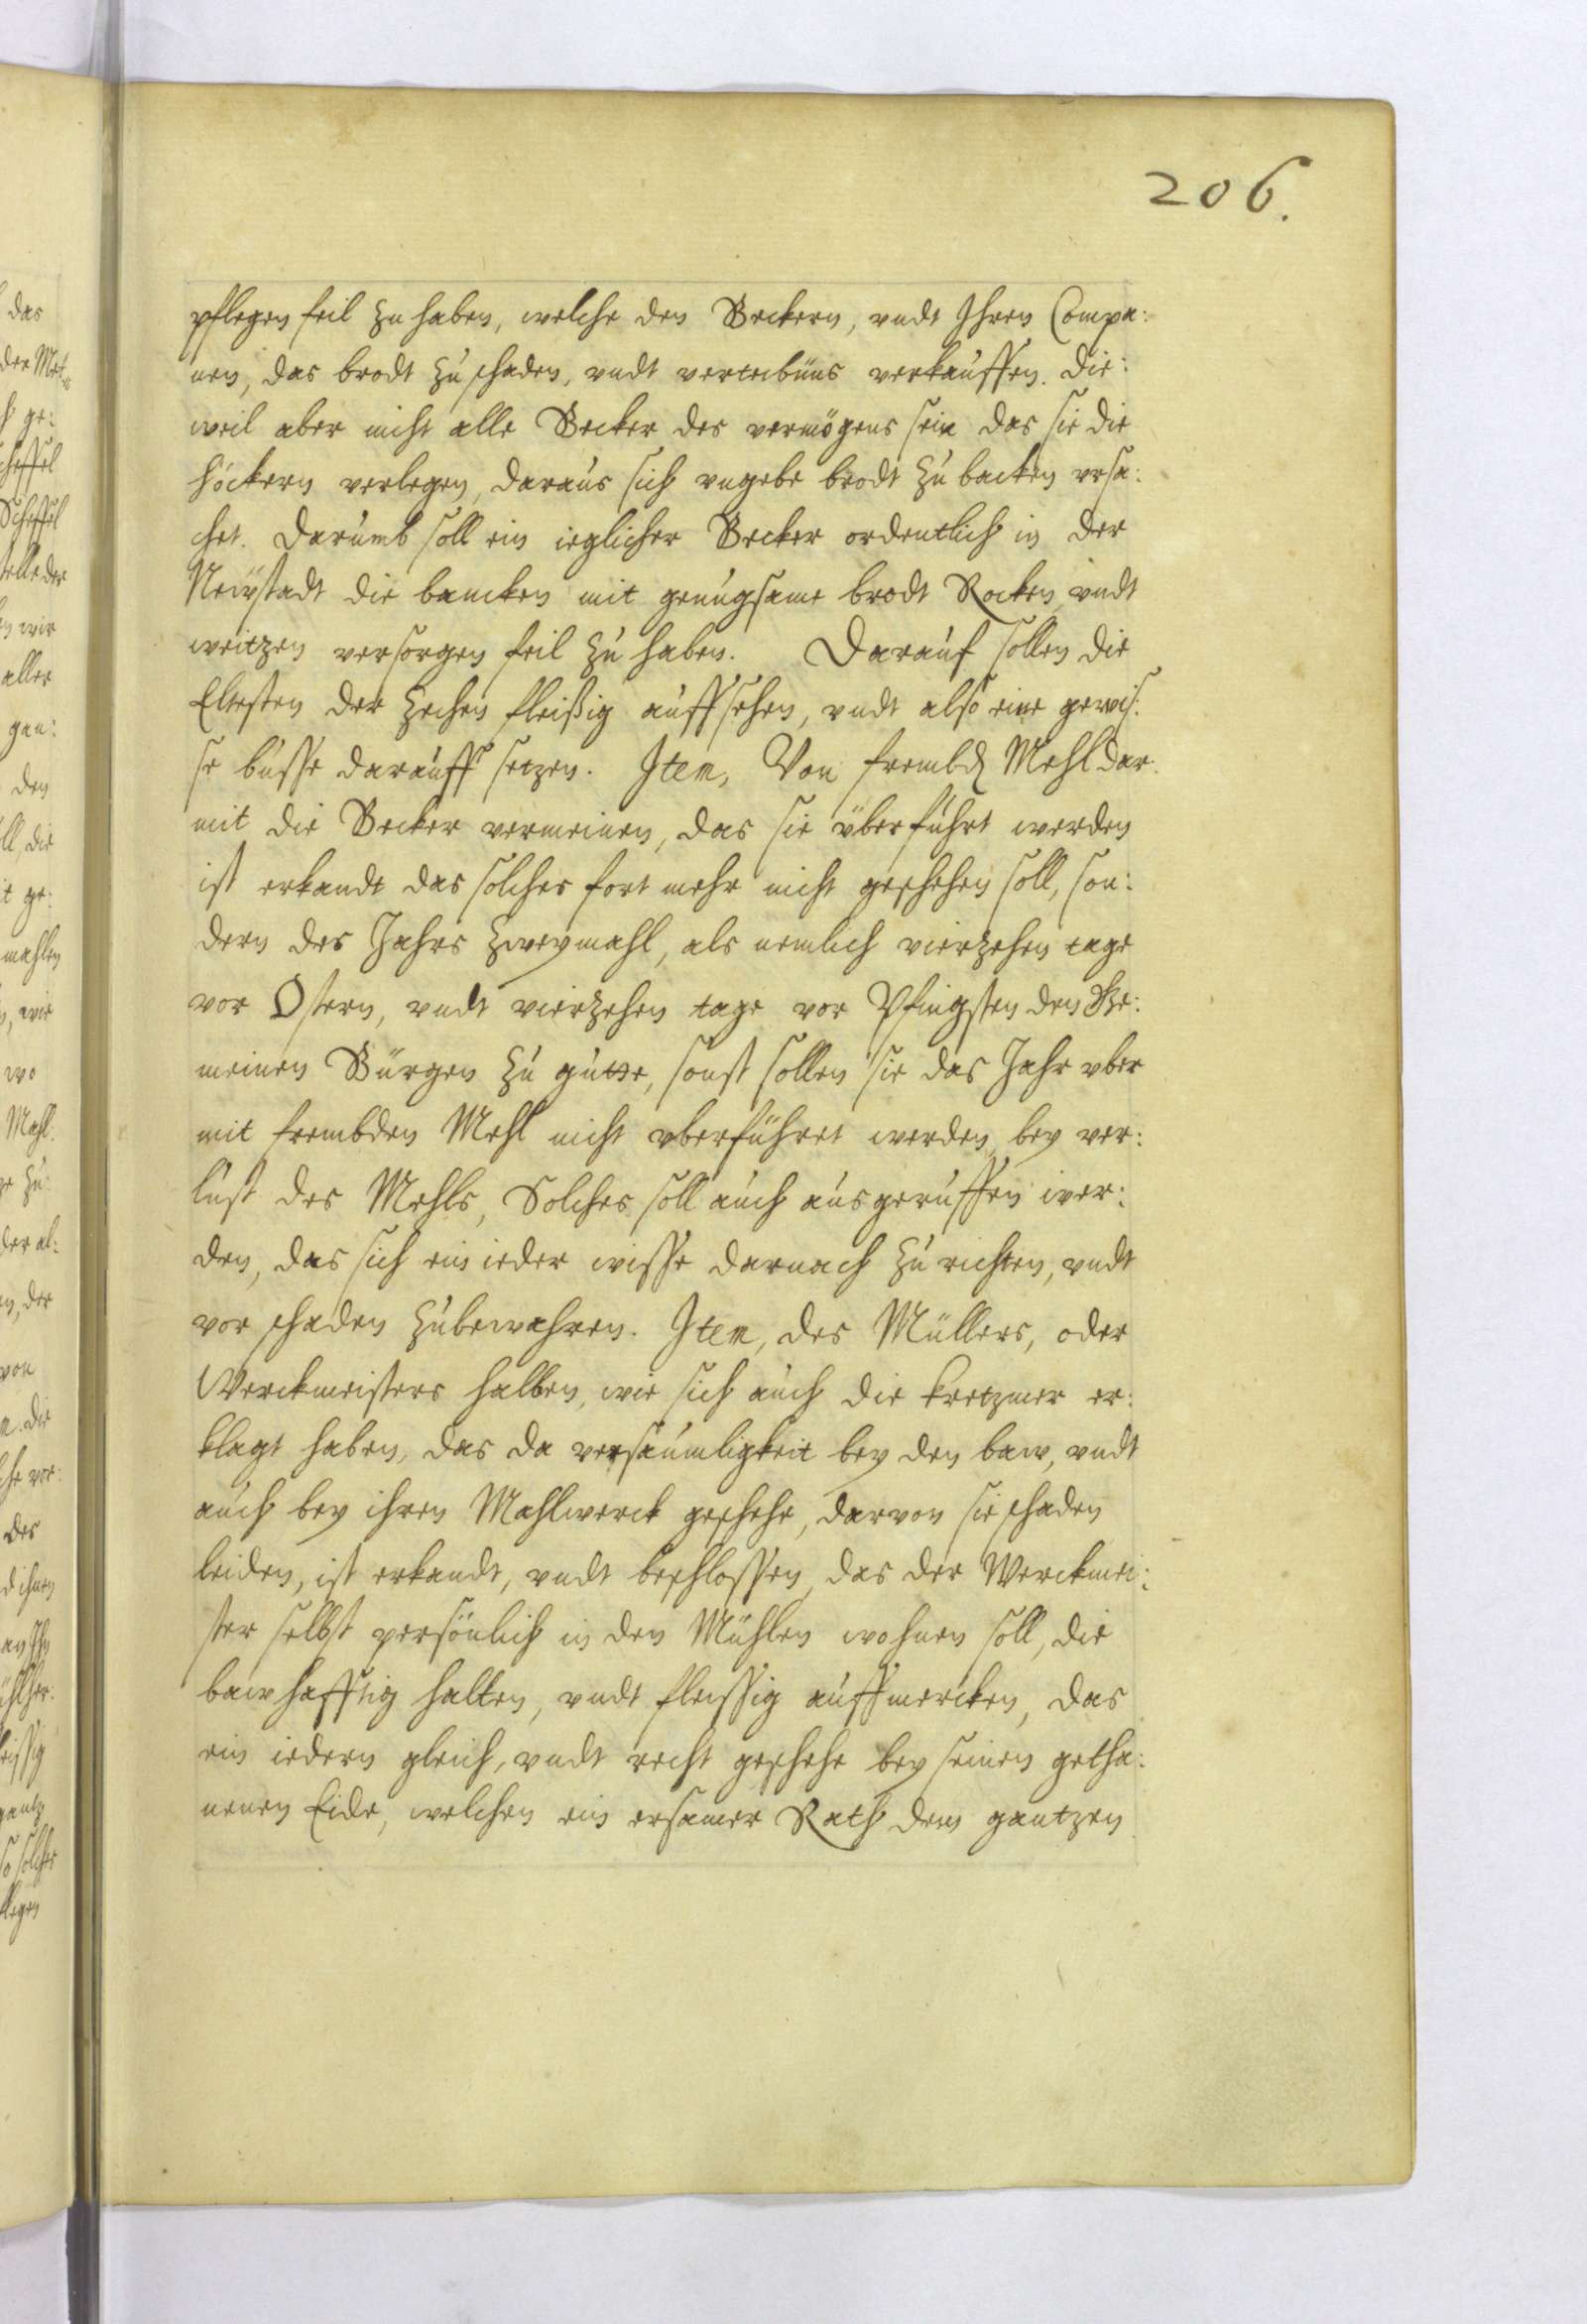 206.
pflegen feil zu haben, welche den Beckern, vndt Ihren Compa:
nen, das brodt zu schaden, vndt verterbnus verkauffen. Die:
weil aber nicht alle Becker des vermögens sein das sie die
höckern verlegen, daraus sich vngebe brodt zu backen vrsa:
chet. Darumb soll ein ieglicher Becker ordentlich in der
Neustadt die bancken mit genugsame brodt Rocken, vndt
weitzen versorgen feil zu haben. Darauf sollen die
Eltesten der Zechen fleißig auffsehen, vndt also eine gewis:
se busse darauff setzen. Item, Von frembd Mehl dar:
mit die Becker vermeinen, das sie überführt werden
ist erkandt das solches fort mehr nicht geschehen soll, son:
dern des Jahrs zweymahl, als nemlich vierzehen tage
vor Ostern, vndt vierzehen tage vor Pfingsten den Ge:
meinen Bürgen zu gutte, sonst sollen sie das Jahr vber
mit frembden Mehl nicht vberführet werden, bey ver:
lust des Mehls, Solches soll auch ausgeruffen wer:
den, das sich ein ieder wisse darnach zu richten, vndt
vor schaden zubewahren. Item, des Müllers, oder
Werckmeisters halben, wie sich auch die Kretzmer er:
klagt haben, das da versäumligkeit bey den baw, vndt
auch bey ihren Mahlwerck geschehe, darvon sie schaden
leiden, ist erkandt, vndt beschlossen, das der Werckmei:
ster selbst persönlich in den Mühlen wohnen soll, die
bawhafftig halten, vndt fleissig auffmercken, das
ein iedern gleich, vndt recht geschehe bey seinen getha:
nenen Eide, welchen ein ersamer Rath dem gantzen